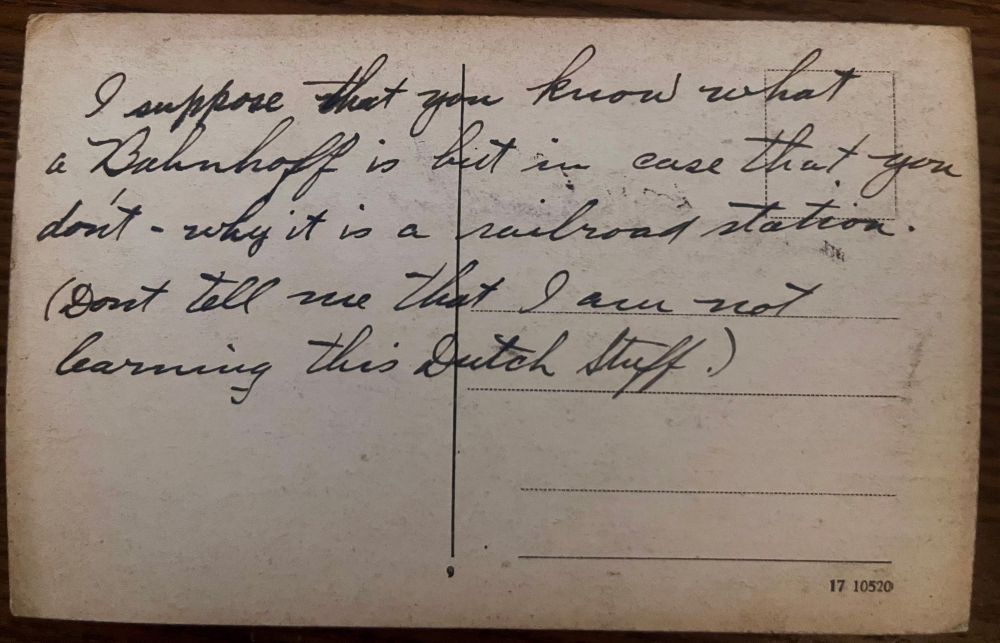 I suppose that you know what
a Bahnhoff is but in case that you
don't - why it is a railroad station.
(Dont tell me that I am not
learning this Dutch Stuff.)
17 10520